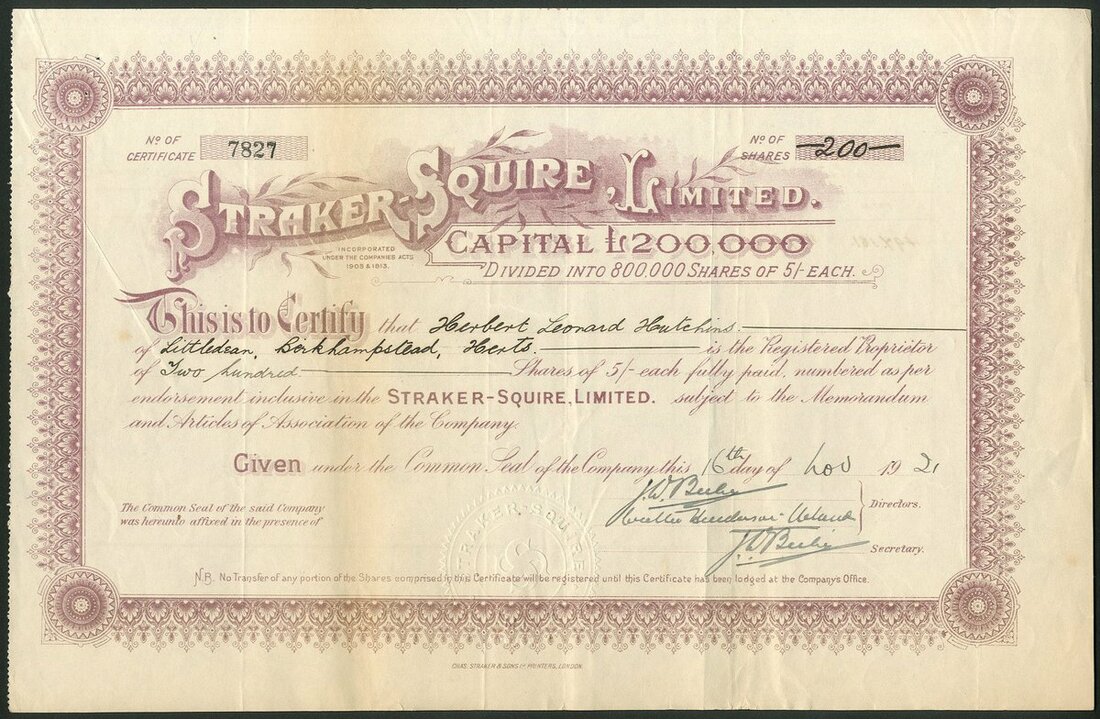 Nº OF CERTIFICATE 7827
Nº OF SHARES 200
STRAKER-SQUIRE, LIMITED.
INCORPORATED
UNDER THE COMPANIES ACTS
1908 & 1913.
CAPITAL £200,000
DIVIDED INTO 800,000 SHARES OF 5/- EACH.
This is to Certify that Herbert Leonard Hutchins
of Littledean, Berkhampstead, Herts is the Registered Proprietor
of Two hundred Shares of 5/- each fully paid, numbered as per
endorsement inclusive in the STRAKER-SQUIRE, LIMITED. subject to the Memorandum
and Articles of Association of the Company.
Given under the Common Seal of the Company this 16th day of Nov 1921
The Common Seal of the said Company
was hereunto affixed in the presence of
Directors.
Secretary.
STRAKER-SQUIRE
N.B. No Transfer of any portion of the Shares comprised in this Certificate will be registered until this Certificate has been lodged at the Company's Office.
CHAS. STRAKER & SONS LD PRINTERS, LONDON.